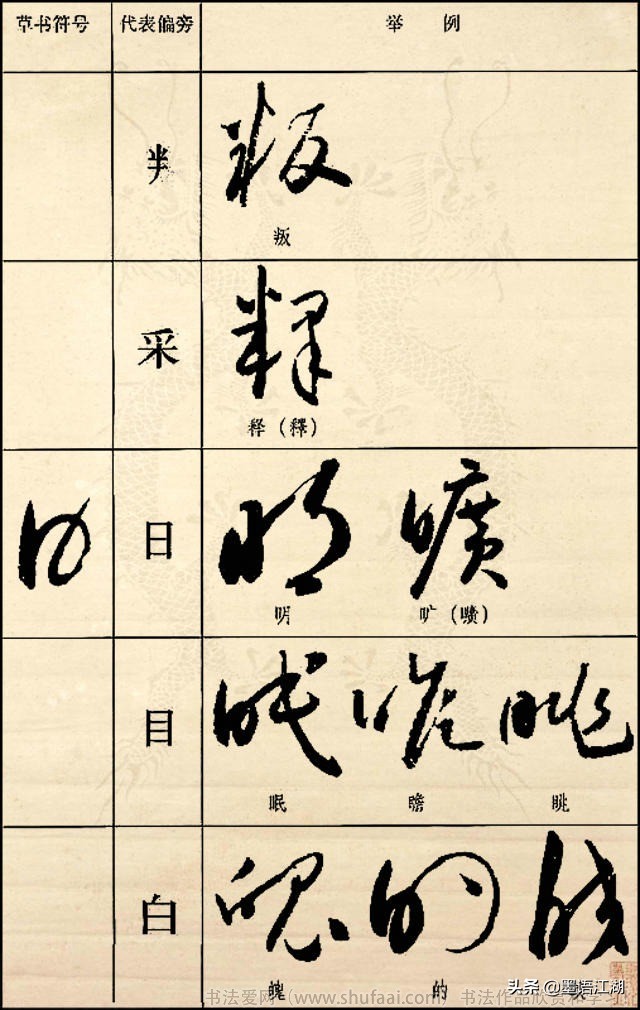 草书符号 代表偏旁 举例
判 叛
叛
采 释
释（釋）
日 明 旷
明 旷（曠）
目 眠 瞻 眺
眠 瞻 眺
白 魄 的
魄 的
书法爱网（www.shufaai.com）书法作品欣赏和学习
头条 @墨语江湖